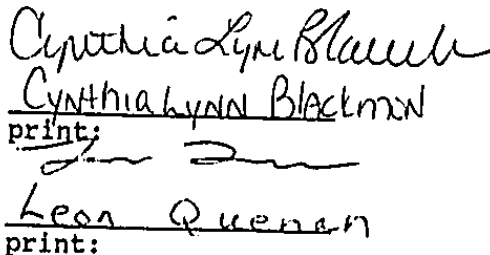 Cynthia Lynn Blackmon
Cynthia Lynn Blackmon
print:
Leon Quenan
print: